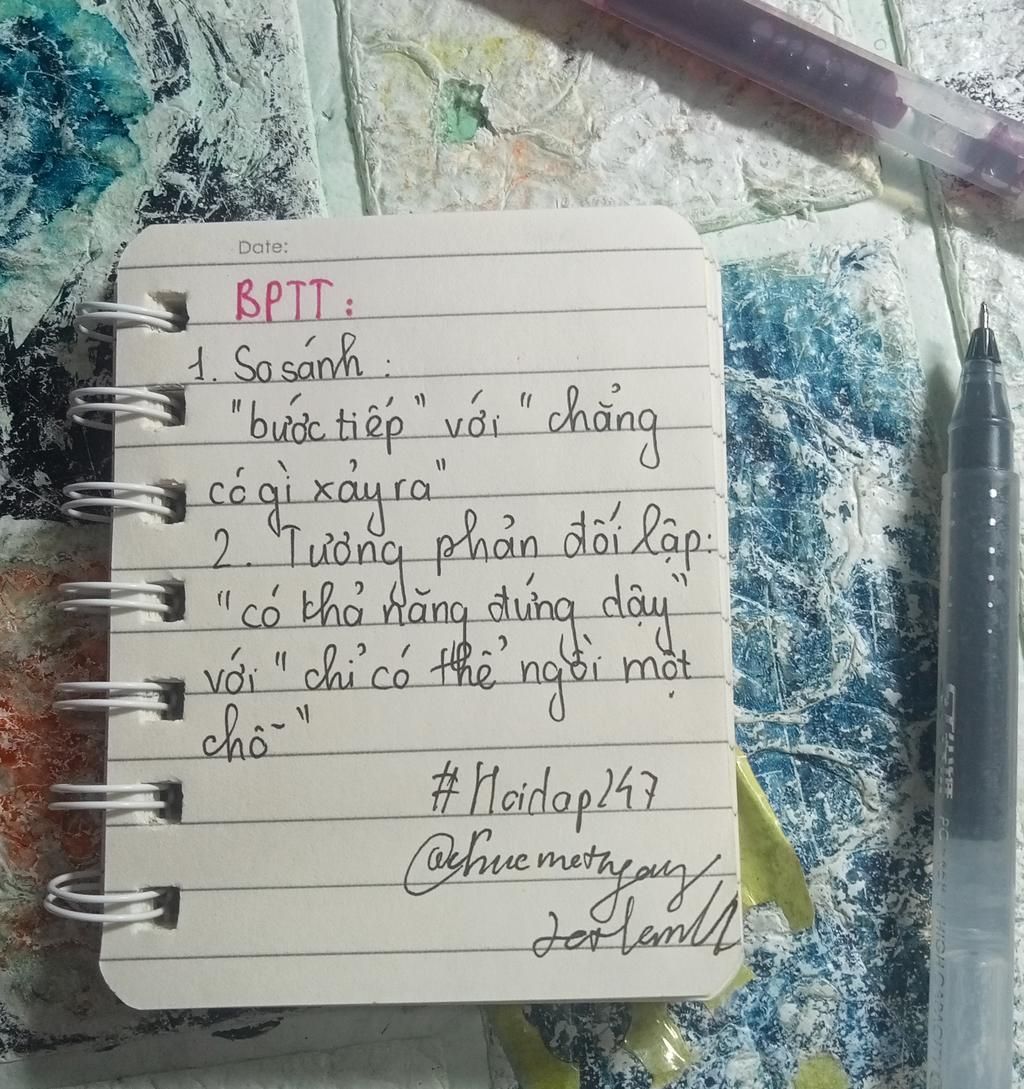 Date:
BPTT:
1. So sánh:
"bước tiếp" với "chẳng
có gì xảy ra"
2. Tương phản đối lập:
"có khả năng đứng dậy"
với "chỉ có thể ngồi một
chỗ"
#Hoidap247